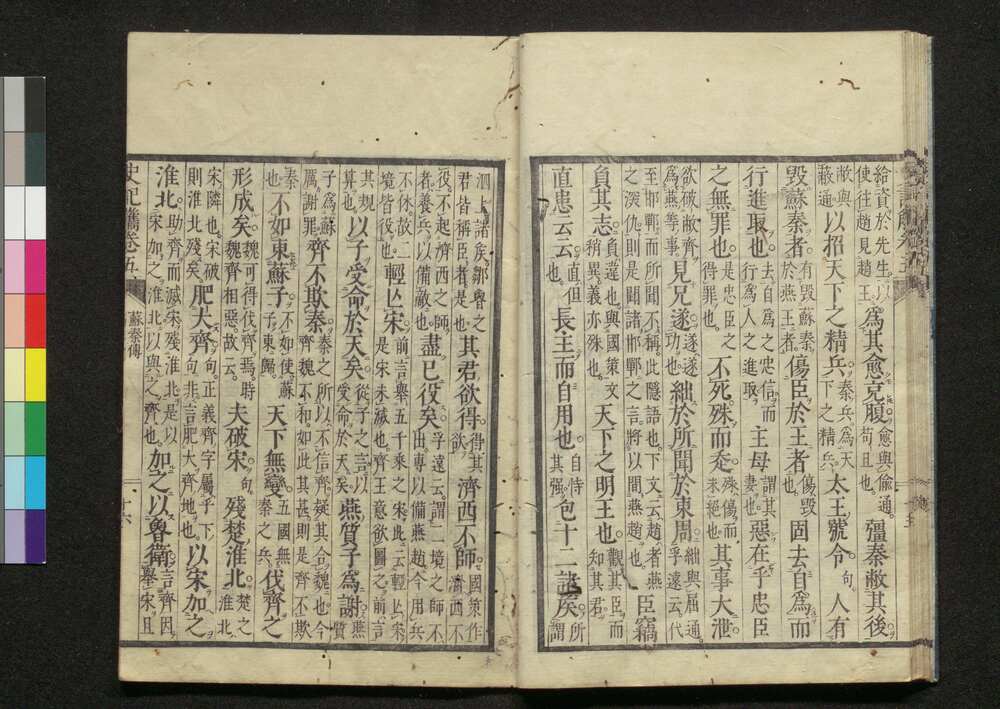 給資於先生以使往趙見趙王爲其愈充腹愈與偷通苟且也殭秦敝其後
敝與蔽通以招天下之精兵秦兵爲天下之精兵太王號令句人有
毀蘇秦者有毀蘇秦於燕王者傷臣於王者也傷毀也固去自爲而
行進取也去自爲之忠信而行爲人之進取主母謂其妻也惡在乎忠臣
之無罪也是忠臣之得罪也不死殊而走殊傷而未絕也其事大泄
欲破敝齊爲燕等事見兄遂遂遂功也絀於所聞於東周絀與屈通孚遠云代
至邯鄲而所聞不稱此隱語也下文云趙者燕之深仇則是聞諸邯鄲之言將以間燕趙也臣竊
負其志負違也與國策文稍異義亦殊也天下之明王也觀其臣而知其君
直患云云直但也長主而自用也自恃其强包十二諸侯所謂
泗上諸侯鄒魯之君皆稱臣者是也其君欲得得其欲濟西不師國策作濟西不
役不起濟西之師者養兵以備敵也盡已役矣孚遠云謂一境之師不出專以備燕趙今用兵
不休故一境皆役也輕亾宋前言舉五千乘之宋此云輕亾宋是宋未滅也齊王意欲圖之前言
其規算也以子受命於天矣從子之言以受命於天矣燕質子爲謝燕質
子爲蘇厲謝罪齊不欺秦秦之所以不信齊疑其合魏也今齊魏不和如此其甚則是齊不欺
秦也不如東蘇子不如使蘇子東歸天下無變五國無秦之兵伐齊之
形成矣魏可得代齊焉時魏齊相惡故云夫破宋句殘楚淮北淮北楚之
宋隣也宋破則淮北殘矣肥大齊句正義齊字屬乎下句非言肥大齊地也以宋加之
淮北助齊而滅宋殘淮北是以宋加之淮北以與之齊也加之以魯衛言齊因舉宋且
史記 卷五 蘇秦傳 十六